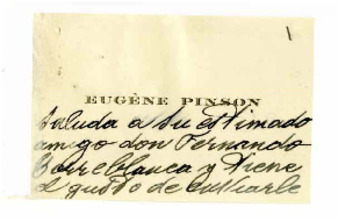 EUGÈNE PINSON
Saluda a su estimado
amigo don Fernando
Torreblanca y tiene
el gusto de enviarle